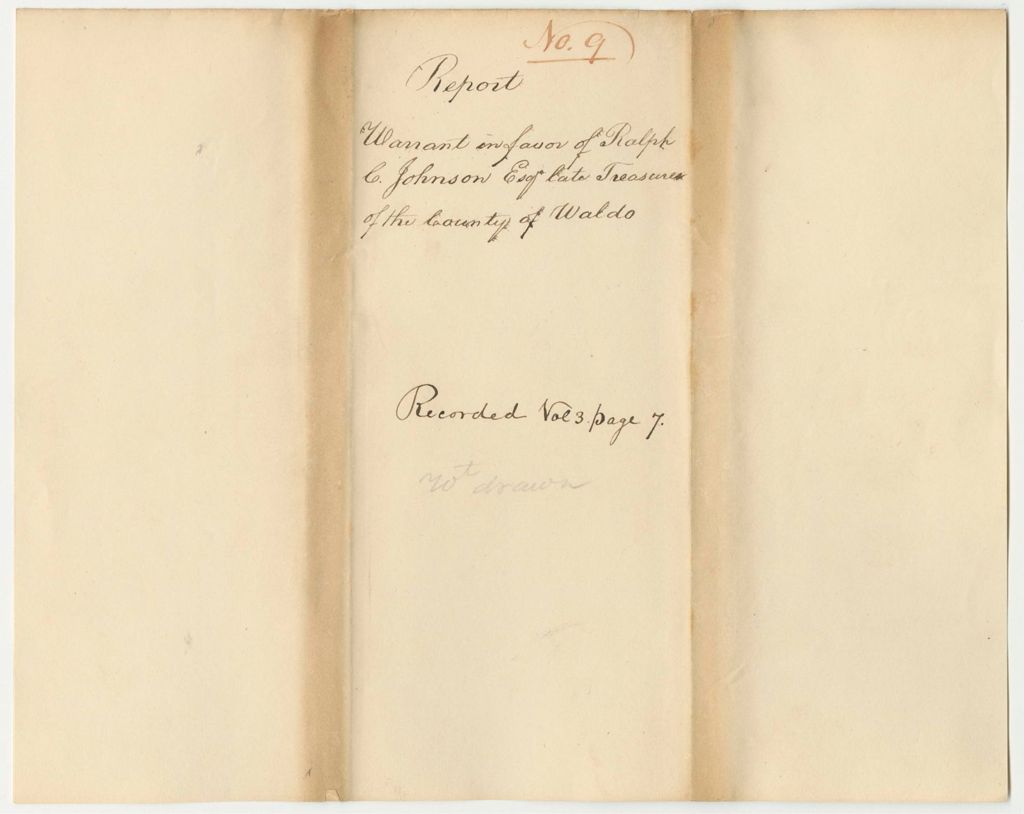 No. 9
Report
Warrant in favor of Ralph
C. Johnson Esqr late Treasurer
of the County of Waldo
Recorded Vol 3. page 7.
Wt drawn